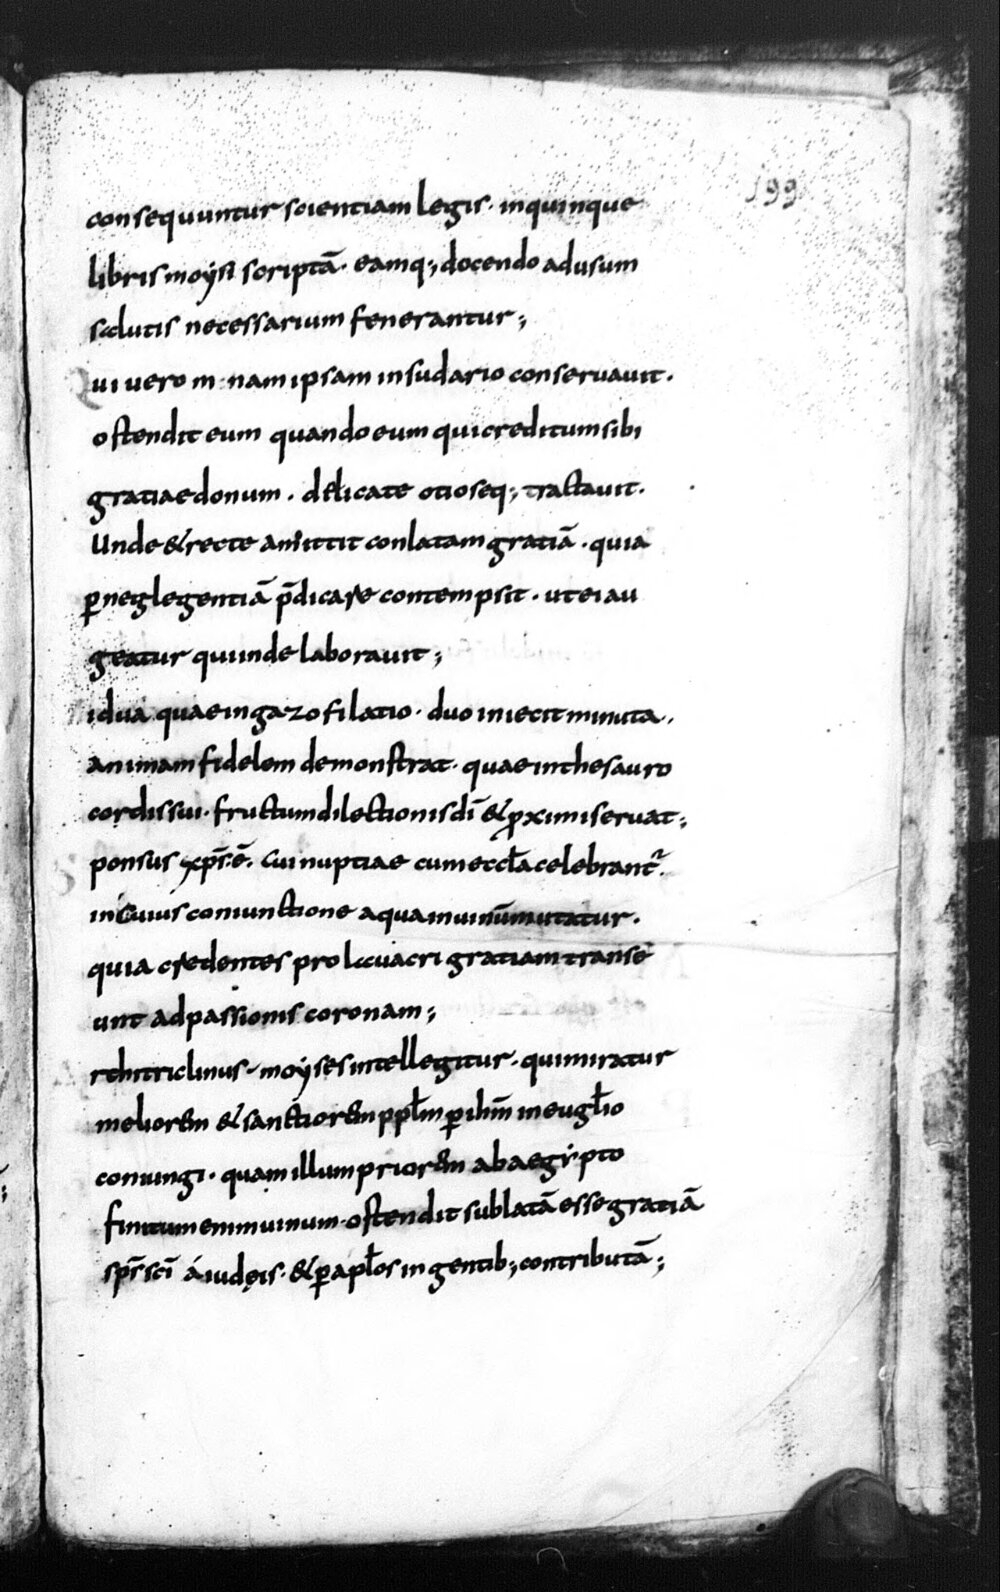 199
consequuntur scientiam legis · inquinque
libris moysi scriptā · eamq; docendo adusum
salutis necessarium fenerantur;
Qui uero m nam ipsam insudario conseruauit.
ostendit eum quando eum qui creditum sibi
gratiae donum · delicate otioseq; tractauit.
Unde & recte amittit conlatam gratiā · quia
p̄ neglegentiā p̄dicare contempsit · ut ei au
geatur qui inde laborauit;
idua quae in gazofilatio · duo iniecit minuta.
animam fidelem demonstrat · quae in thesauro
cordis sui · fructum dilectionis dī & proximi seruat;
ponsus xp̄s ē. Cui nuptiae cum eccl̄a celebrant᷑.
in Cuius coniunctione aqua in uinūm mutatur.
quia credentes pro lauacri gratiam transe
unt ad passionis coronam;
rchitriclinus · moyses intellegitur · qui miratur
meliorem & sanctiorem ppl̄m p̄ ihm̄ in eugl̄io
coniungi · quam illum priorem ab aegypto
finitum enim uinum · ostendit sublatā esse gratiā
sp̄s scī á iudęis · & p̄ apl̄os in gentib; contributā;